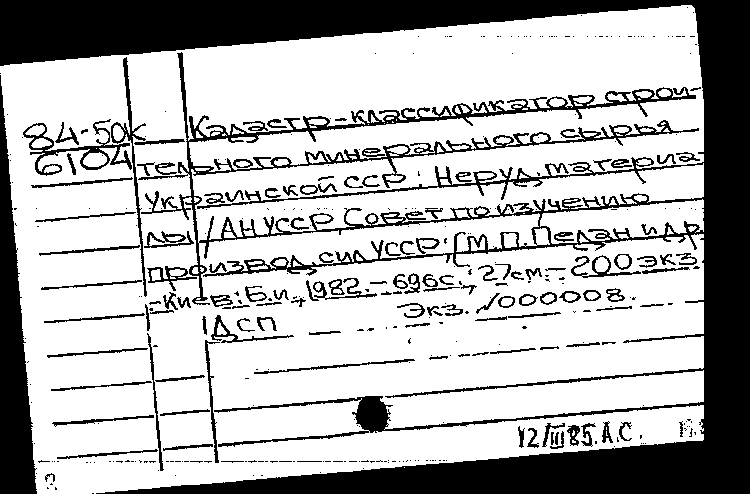 84-50к Кадастр-классификатор строи-
6104 тельного минерального сырья
Украинской ССР: Неруд. материа-
лы / АН УССР, Совет по изучению
производ. сил УССР; [М.П. Пелан и др.
-Киев: Б.и., 1982.-696с.; 27см.-200экз.
ДСП Экз. √000008.
12/III 85. А.С.